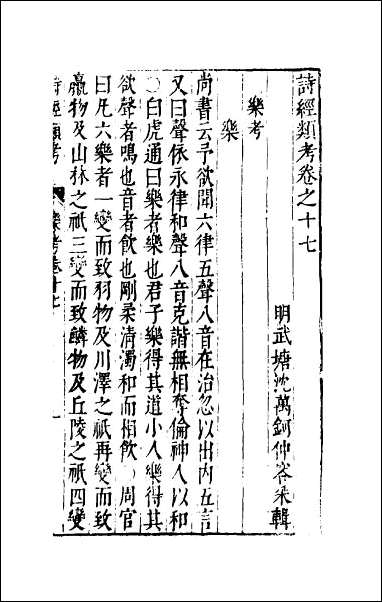 詩經類考卷之十七
明武塘沈萬鈳仲容采輯
樂考
樂
尚書云予欲聞六律五聲八音在治忽以出內五言
又曰聲依永律和聲八音克諧無相奪倫神人以和
○白虎通曰樂者樂也君子樂得其道小人樂得其
欲聲者鳴也音者飲也剛柔清濁和而相飲○周官
曰凡六樂者一變而致羽物及川澤之祇再變而致
臝物及山林之祇三變而致鱗物及丘陵之祇四變
詩經類考 樂考卷十七 一